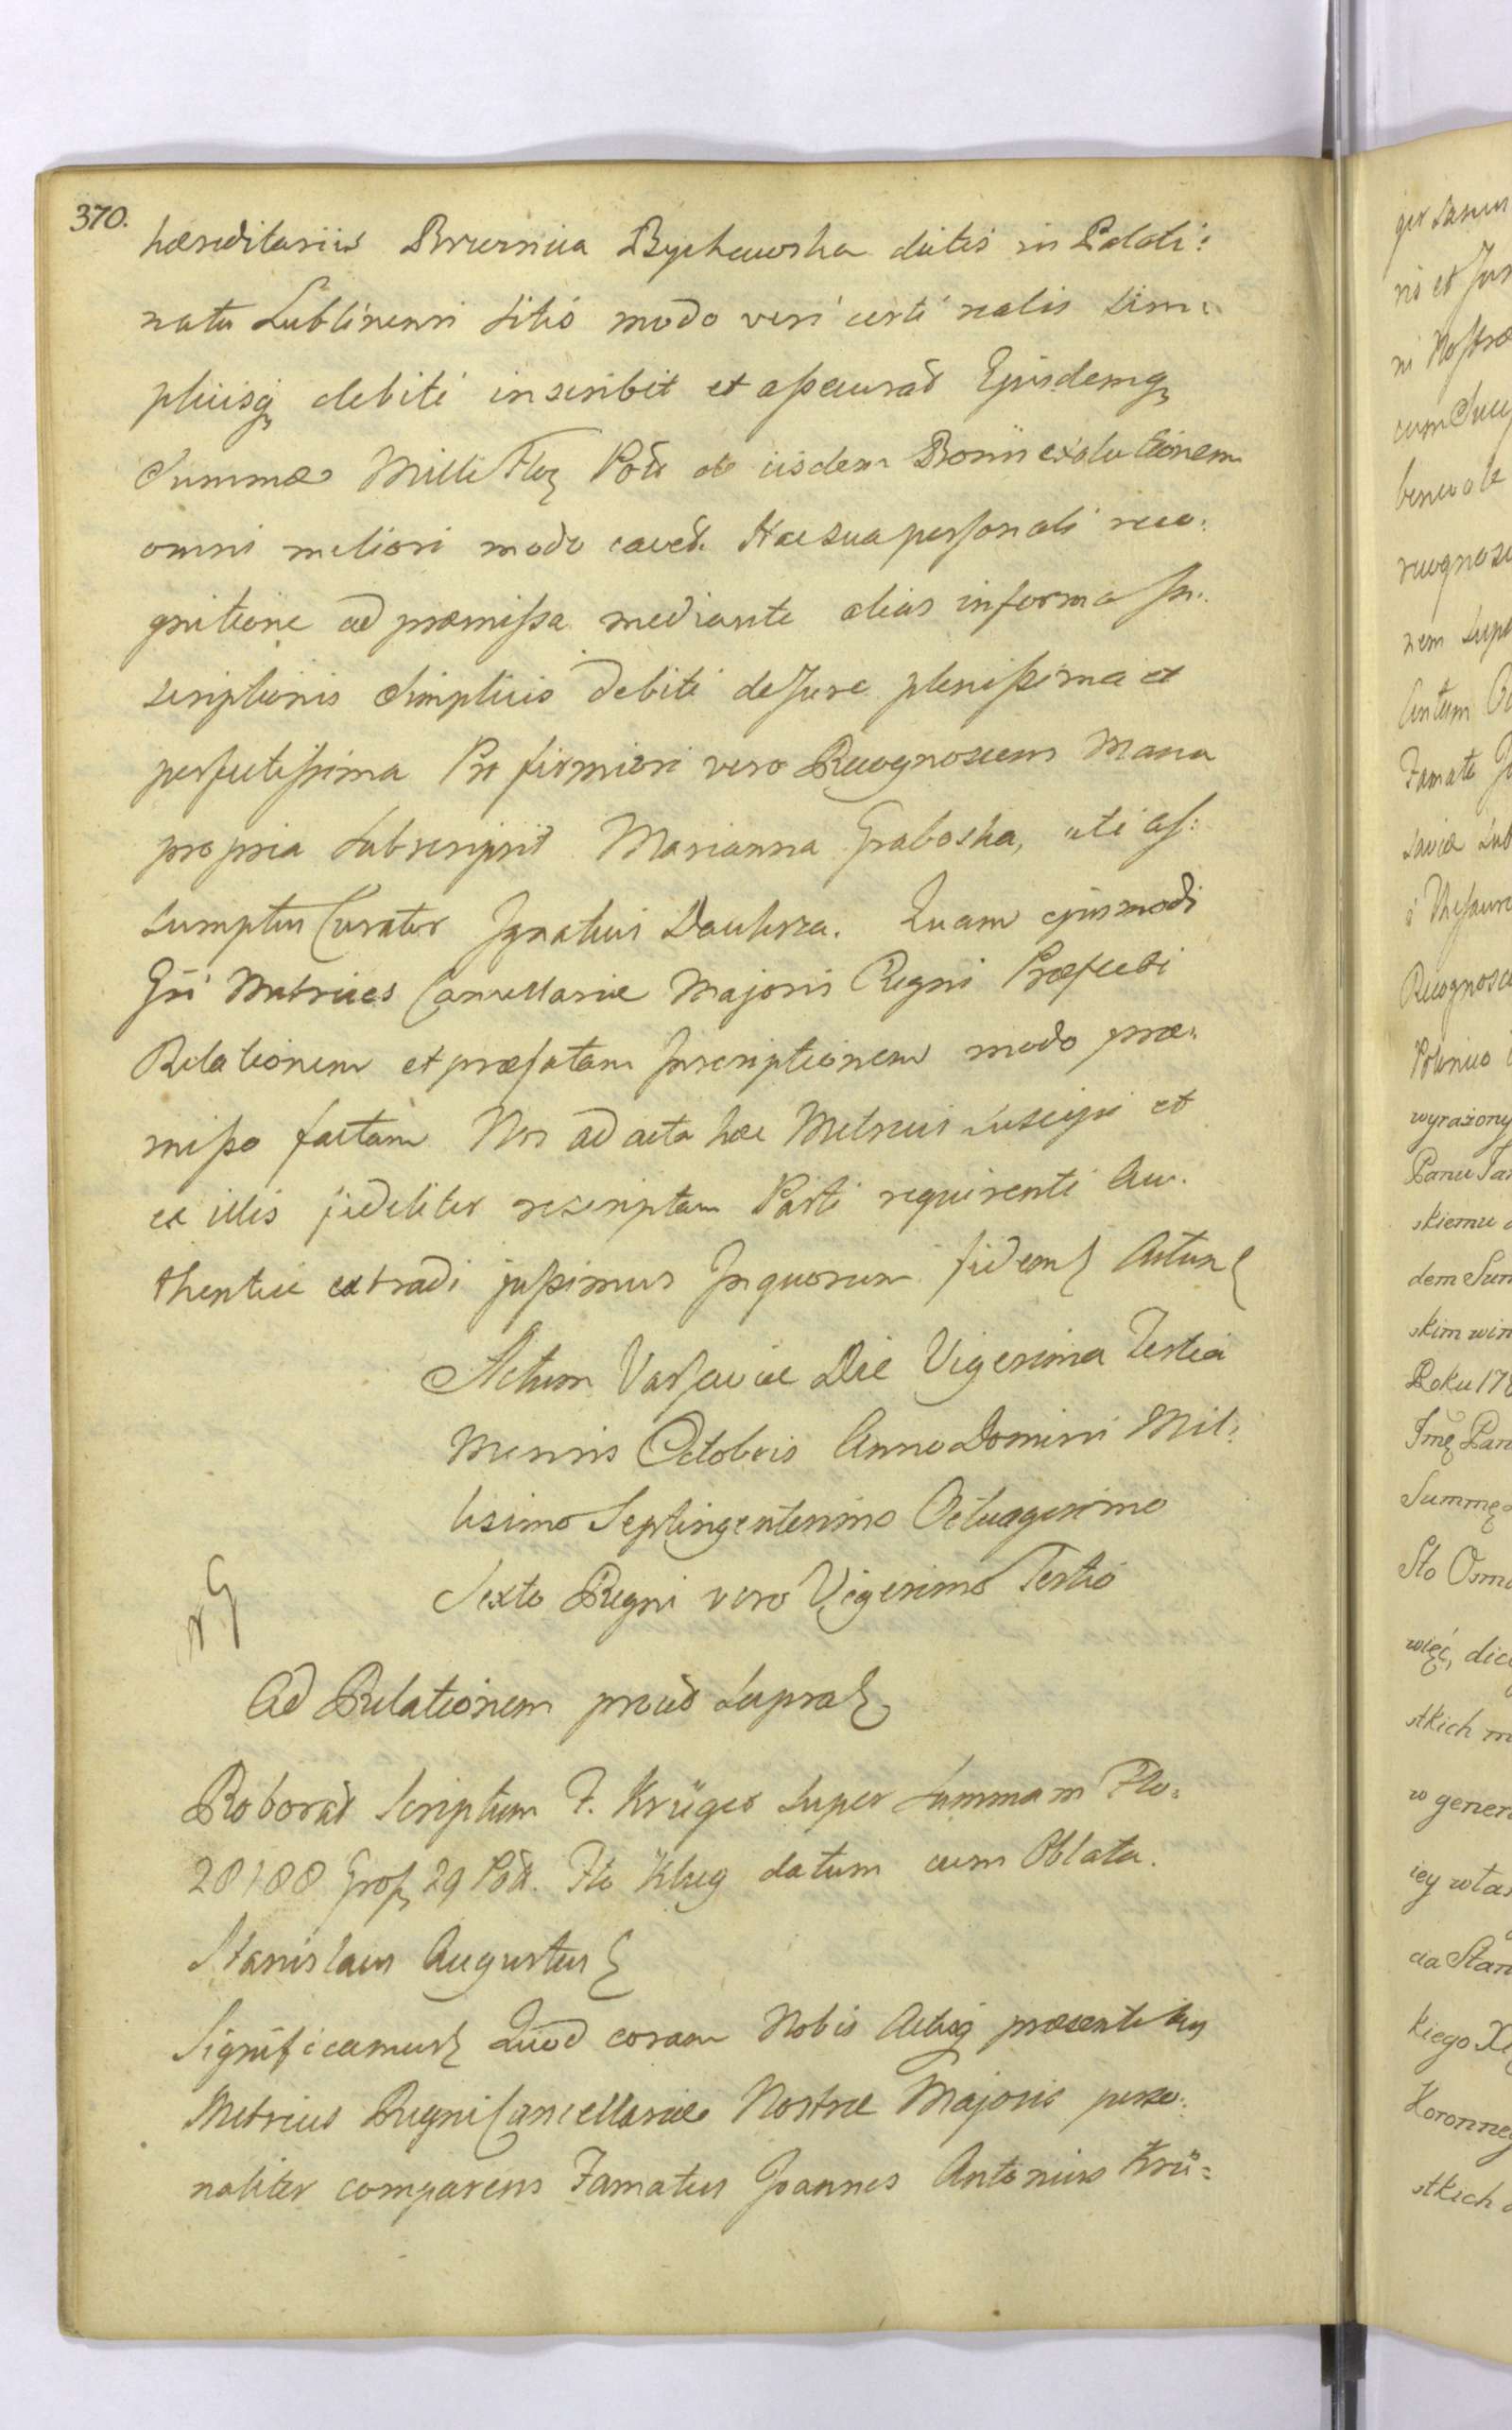 370.
hæreditariis Brzeznica Bychawska dictis in Palati:
natu Lublinensi sitis modo veri certi realis sim:
plicisq debiti inscribit et assecurat Ejusdemq
Summæ Mille Flor Pol de iisdem Bonis exolutionem
omni meliori modo cavet. Hac sua personali reco:
gnitione ad præmissa mediante alias in forma In:
scriptionis Simplicis debiti de Jure plenissima et
perfectissima Pro firmiori vero Recognoscens Manu
propria subscripsit Marianna Graboska, uti as:
sumptus Curator Ignatius Quam ejusmodi
Gsi Metrices Cancellariæ Majoris Regni Præfecti
Relationem et præfatam Inscriptionem modo præ:
misso factam Nos ad acta hæc Metrices suscepi et
ex illis fideliter rescriptam Parti requirenti Au:
thentice extradi jussimus In quorum fidem Actum
Actum Varsaviæ Die Vigesima Tertia
Mensis Octobris Anno Domini Mil:
lesimo Septingentesimo Octuagesimo
Sexto Regni vero Vigesimo Tertio
Ad Relationem prout supra
Roborat Scriptum F. Krüger super Summam Flo:
20188 Gros 29 Pol. Flo Klug datum cum Oblata.
Stanislaus Augustus
Significamus Quod coram Nobis Actisq præsentibus
Metrices Regni Cancellariæ Nostræ Majoris perso:
naliter comparens Famatus Joannes Antonius Krü=
ris et Jur
ni Nostræ
benevole
recognosc
nem supe
Famato
Recognosce
wyrażony
Panu
skiemu
dem Sum
skim win
Roku 178
Jmę Pan
Summę
Sto Osm
więc, dic
stkich m
w gener
iey włas
cia Stan
kiego
Koronne
stkich